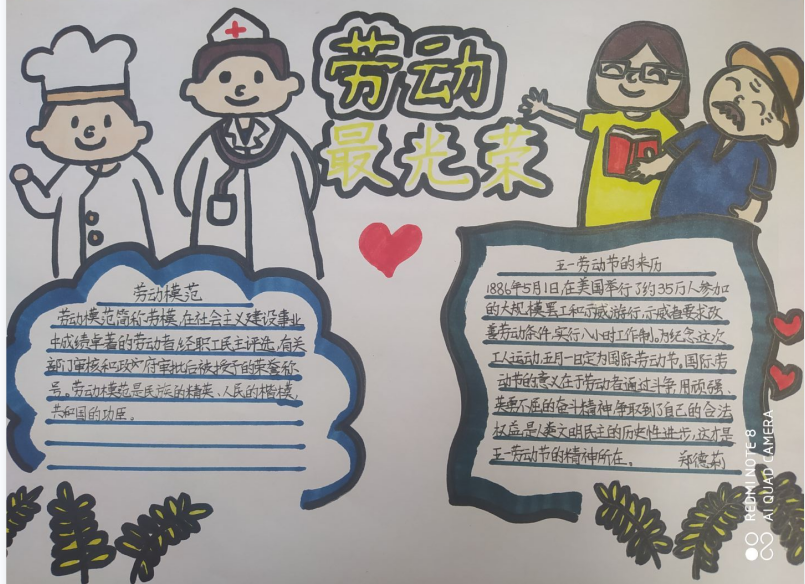 劳动
最光荣
劳动模范
劳动模范简称劳模,在社会主义建设事业
中成绩卓著的劳动者,经职工民主评选,有关
部门审核和政府审批后被授予的荣誉称
号。劳动模范是民族的精英、人民的楷模,
共和国的功臣。
五一劳动节的来历
1886年5月1日,在美国举行了约35万人参加
的大规模罢工和示威游行,示威者要求改
善劳动条件,实行八小时工作制。为纪念这次
工人运动,五月一日定为国际劳动节。国际劳
动节的意义在于劳动者通过斗争,用顽强、
英勇不屈的奋斗精神,争取到了自己的合法
权益,是人类文明民主的历史性进步,这才是
五一劳动节的精神所在。 郑德莉
REDMI NOTE 8
AI QUAD CAMERA